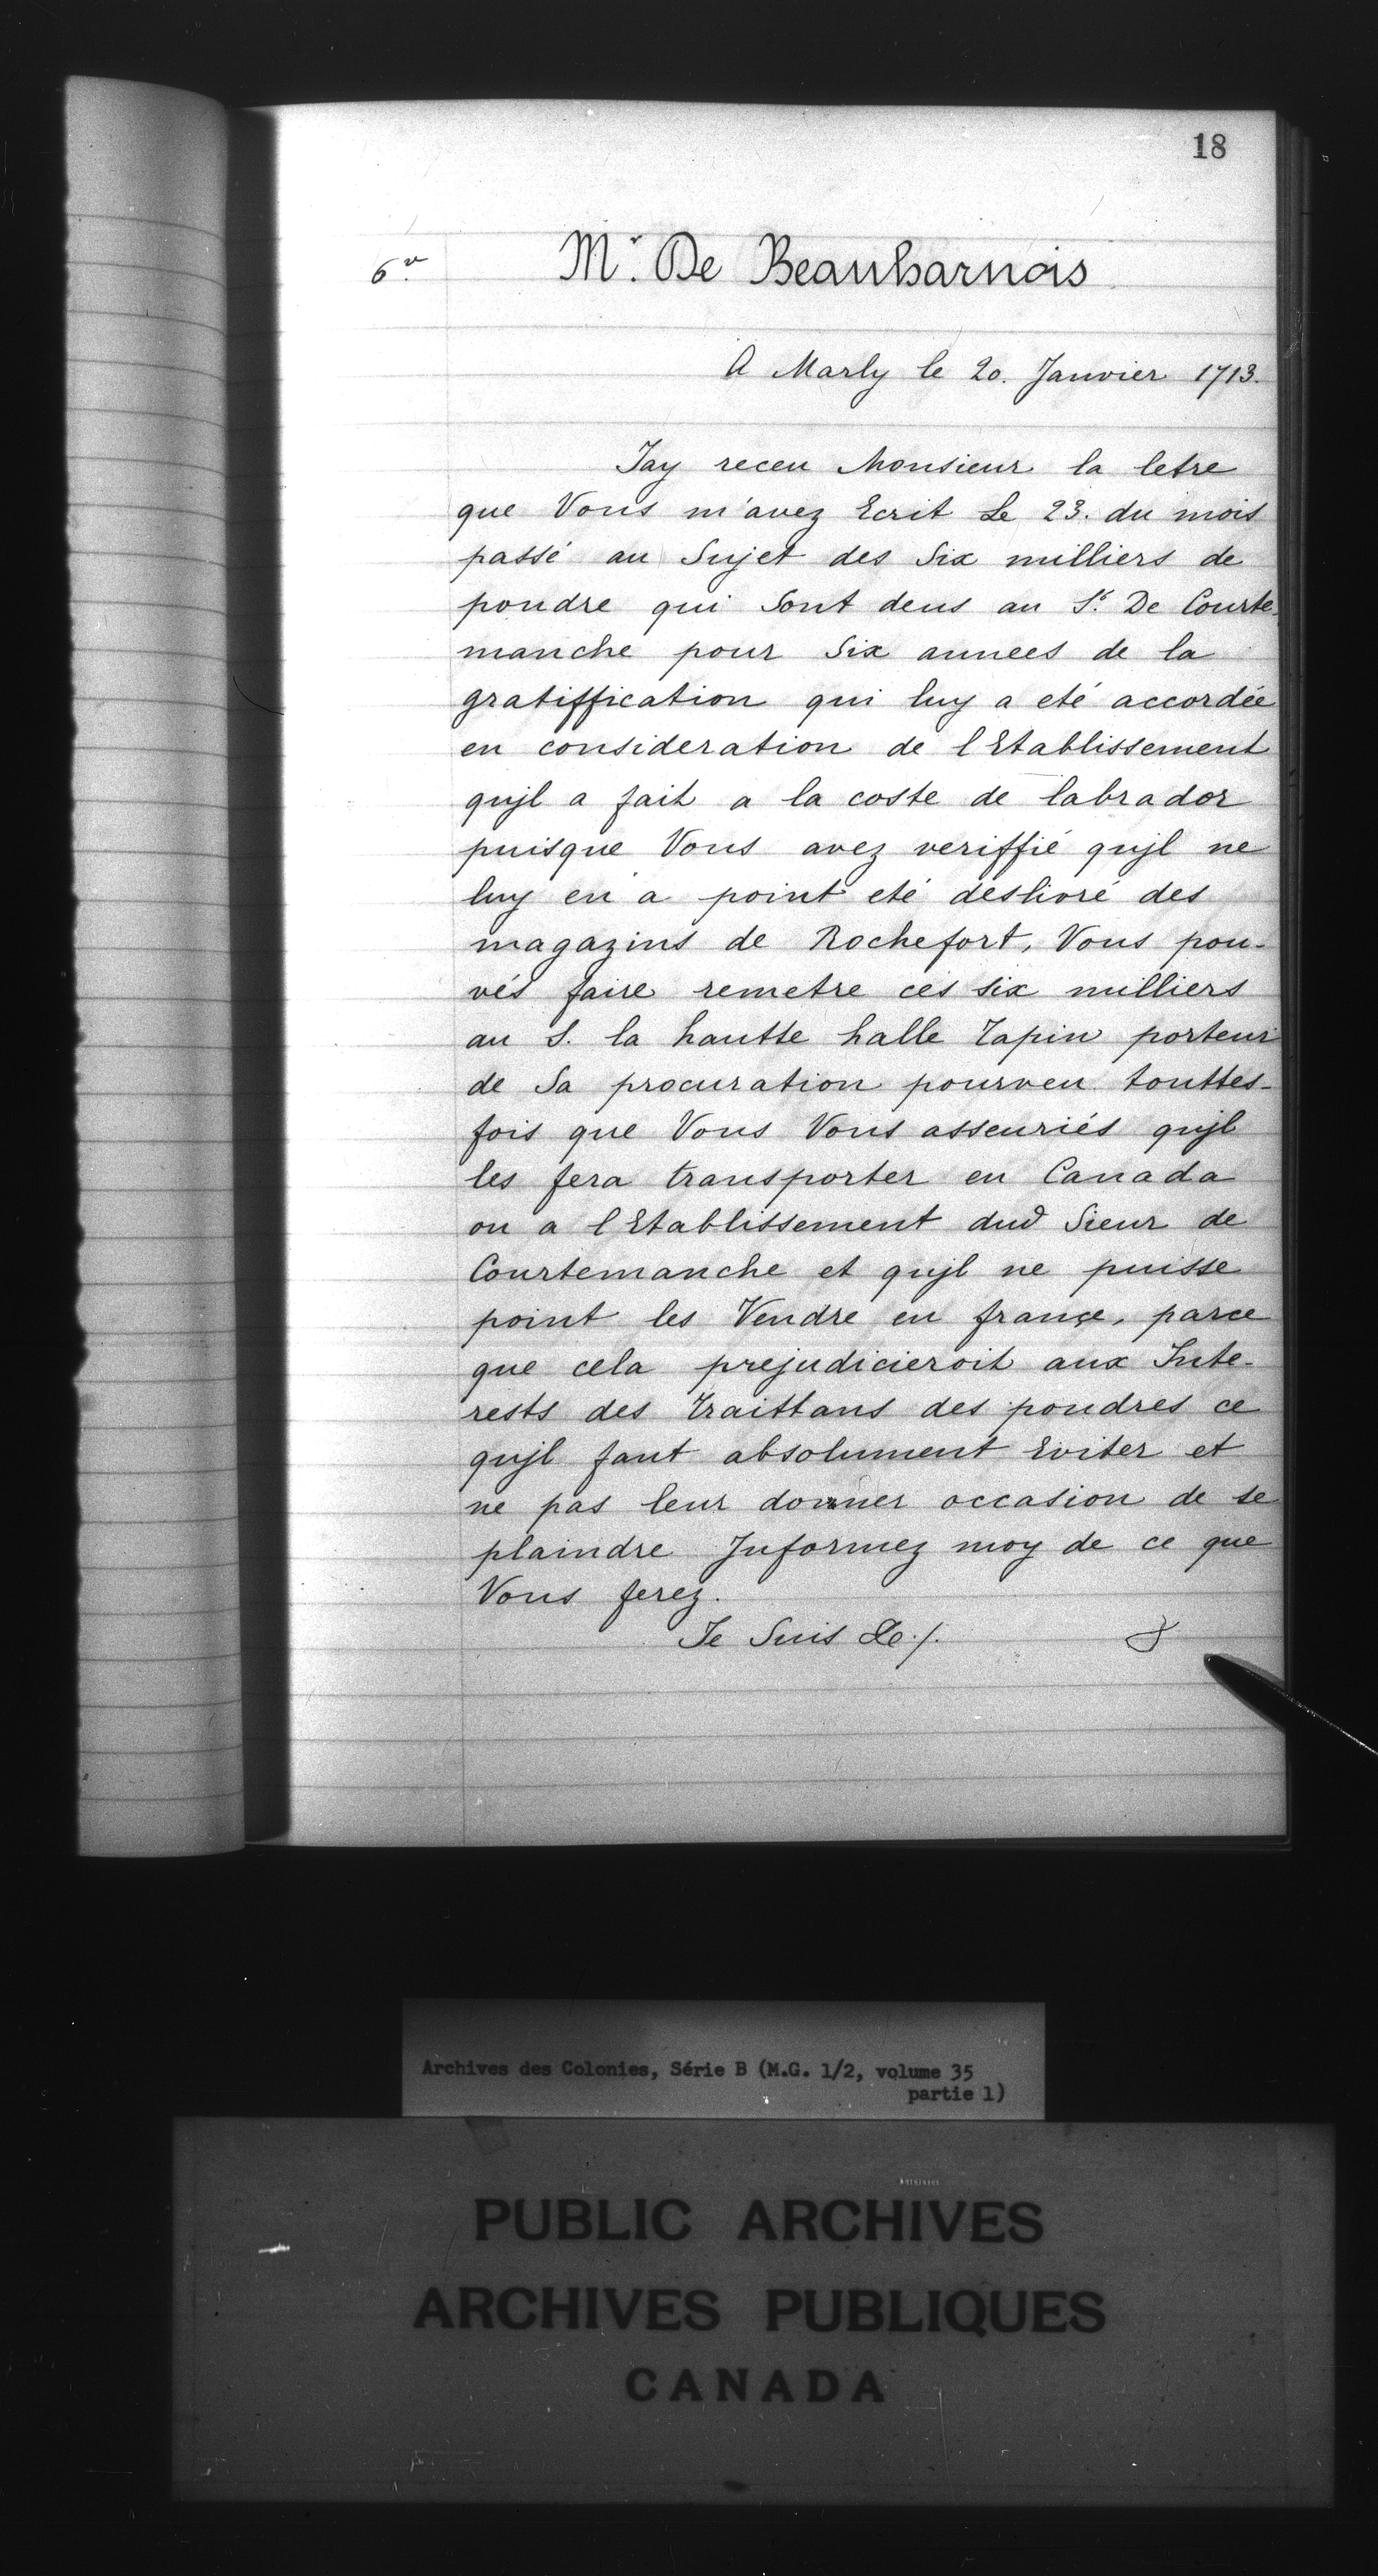 18
6.v
Mr. De Beauharnois
A Marly le 20. Janvier 1713.
Jay receu Monsieur la letre
que Vous m'avez Ecrit Le 23. du mois
passé au Sujet des Six milliers de
poudre qui Sont deus au Sr. De Courte-
manche pour Six annees de la
gratiffication qui luy a eté accordée
en consideration de l Etablissement
qujl a fait a la coste de labrador
puisque Vous avez veriffié qujl ne
luy en a point eté deslivré des
magazins de Rochefort, Vous pou-
vés faire remetre ces six milliers
au S. la hautte halle Tapin porteur
de Sa procuration pourveu touttes-
fois que Vous Vous asseuriés qujl
les fera transporter en Canada
ou a l Etablissement dud Sieur de
Courtemanche et qujl ne puisse
point les Vendre en françe, parce
que cela prejudicieroit aux Inte-
rests des traittans des poudres ce
qujl faut absolument Eviter et
ne pas leur donner occasion de se
plaindre Informez moy de ce que
Vous ferez.
Je Suis &c./.
Archives des Colonies, Série B (M.G. 1/2, volume 35
partie 1)
PUBLIC ARCHIVES
ARCHIVES PUBLIQUES
CANADA